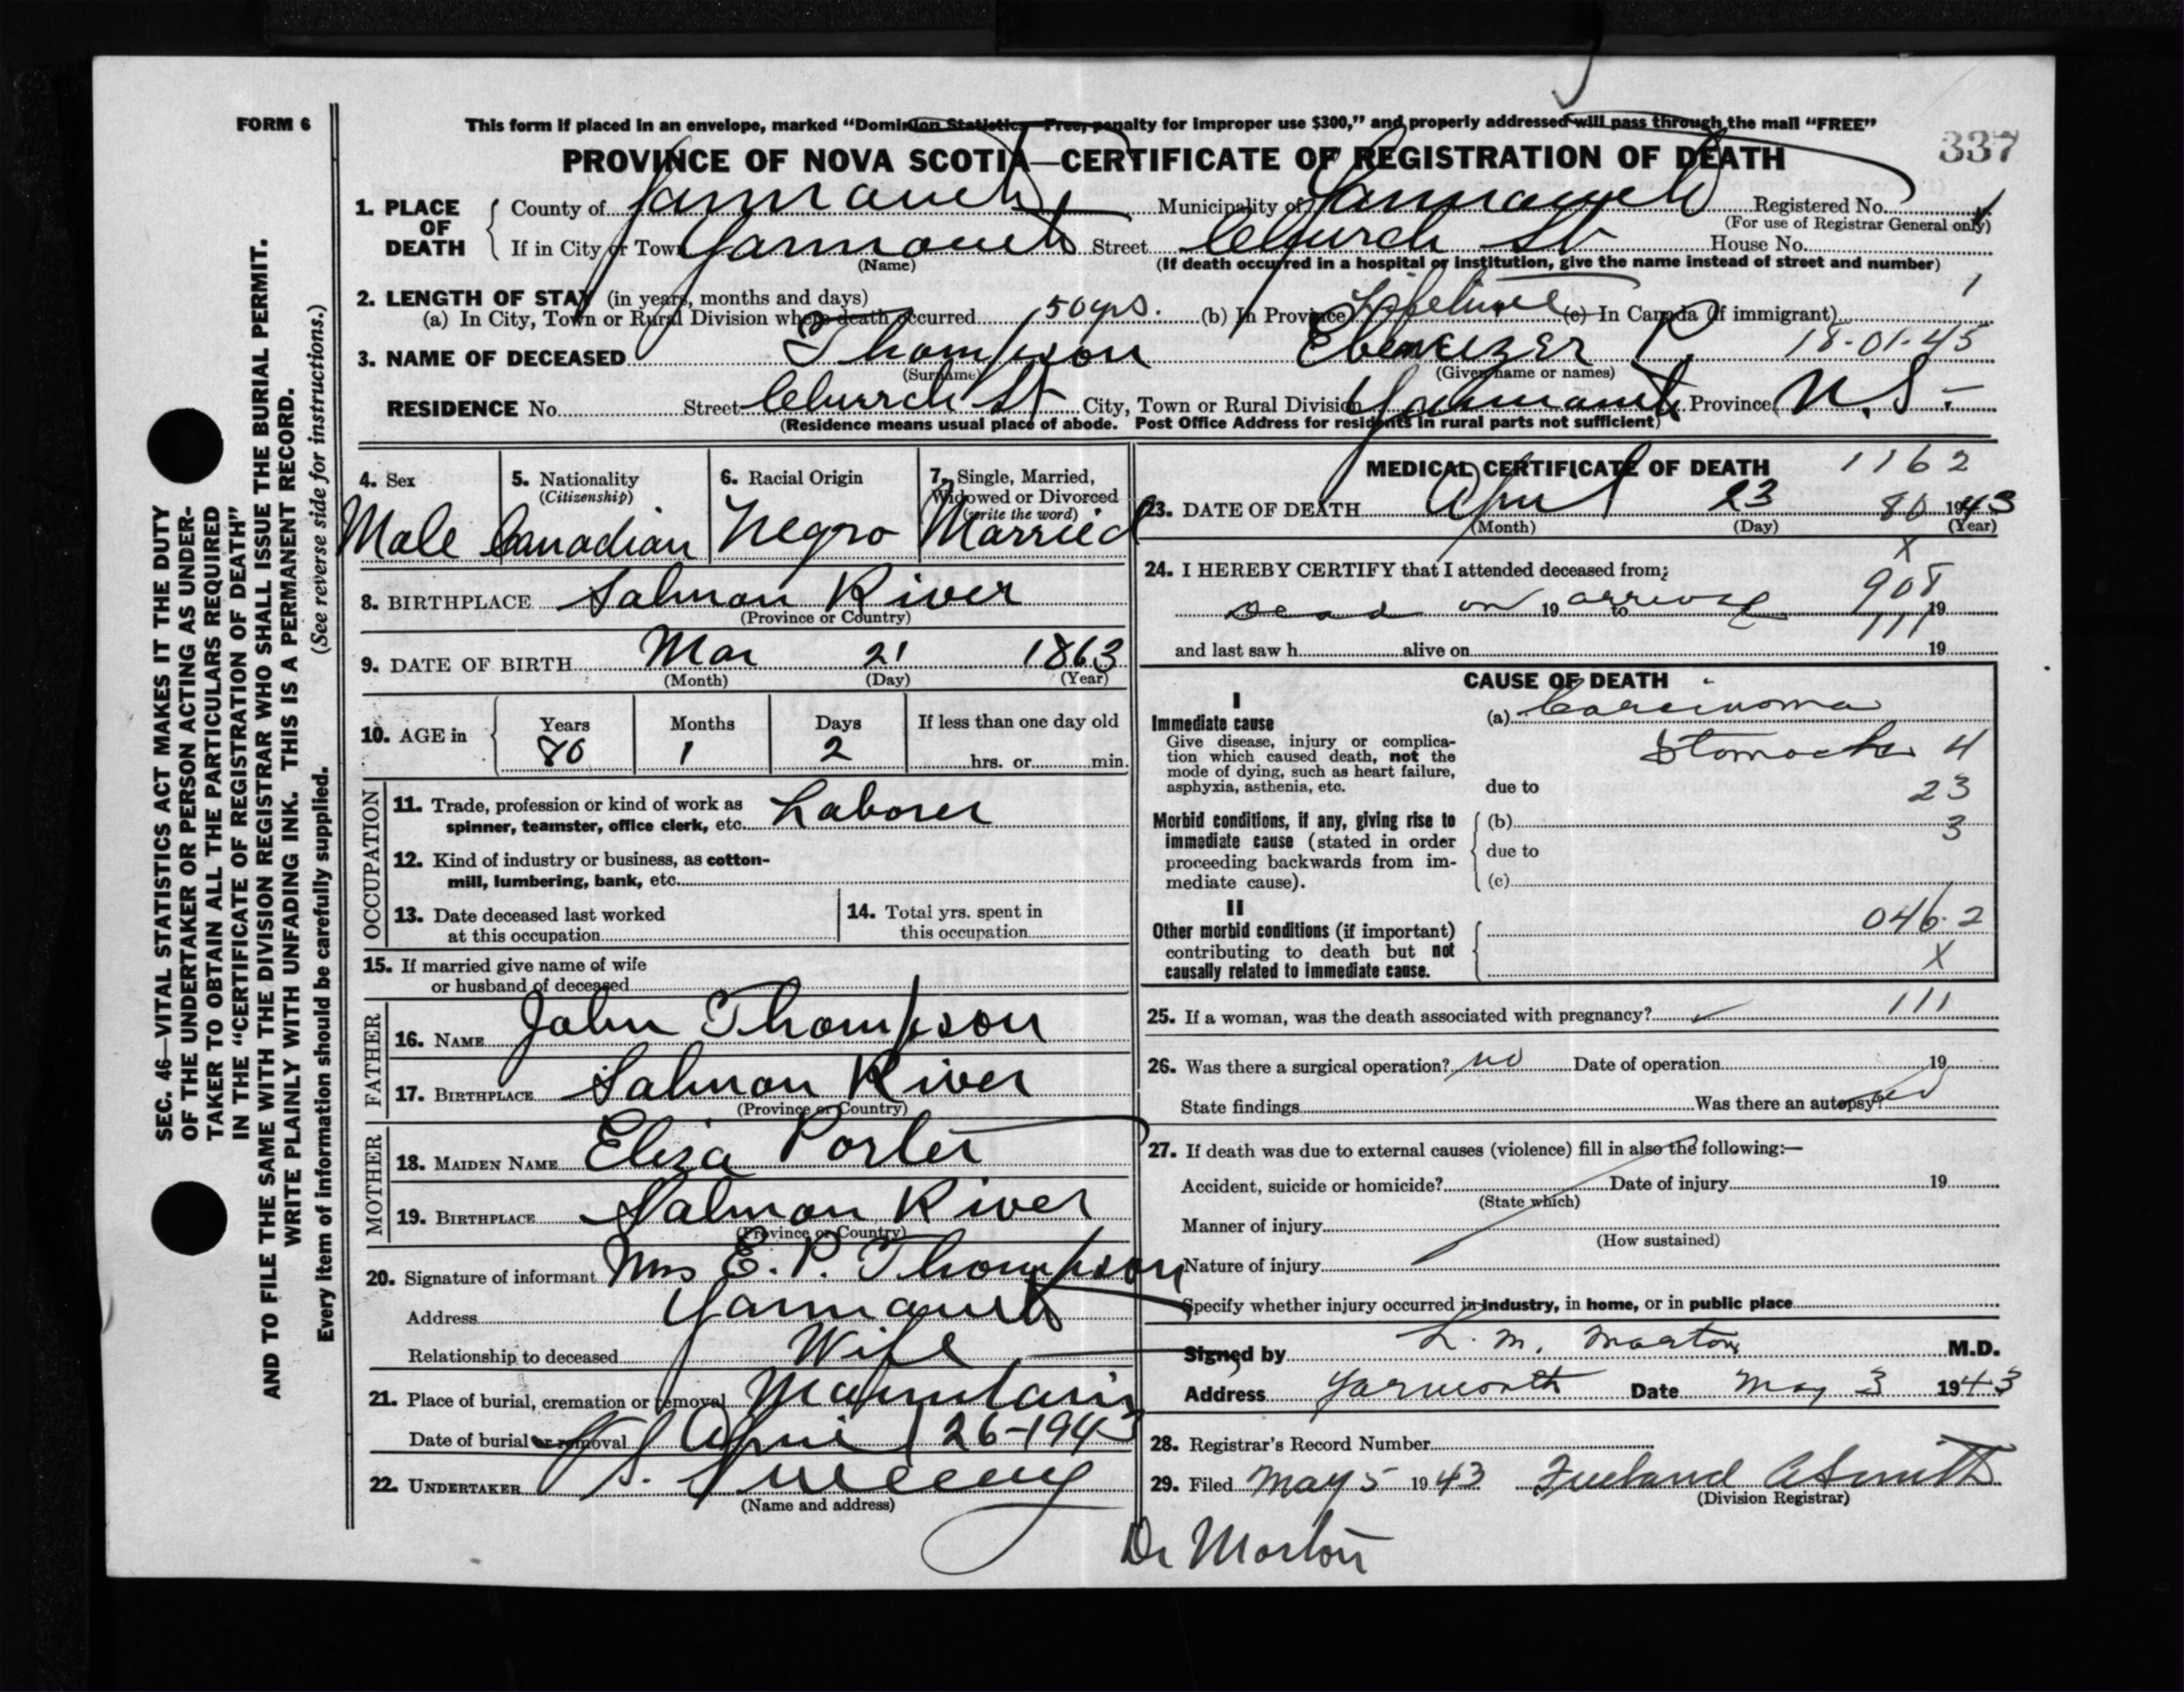 FORM 6
This form if placed in an envelope, marked “Dominion Statistics—Free, penalty for improper use $300,” and properly addressed will pass through the mail “FREE”
PROVINCE OF NOVA SCOTIA—CERTIFICATE OF REGISTRATION OF DEATH
337
1. PLACE OF DEATH
County of Yarmouth Municipality of Yarmouth Registered No.
(For use of Registrar General only)
If in City or Town Yarmouth Street Church St House No.
(Name) (If death occurred in a hospital or institution, give the name instead of street and number)
2. LENGTH OF STAY (in years, months and days) 1
(a) In City, Town or Rural Division where death occurred 50 yrs. (b) In Province Lifetime (c) In Canada (if immigrant)
3. NAME OF DECEASED Thompson Ebenezer P. 18-01-45
(Surname) (Given name or names)
RESIDENCE No. Street Church St City, Town or Rural Division Yarmouth Province N.S.-
(Residence means usual place of abode. Post Office Address for residents in rural parts not sufficient)
4. Sex 5. Nationality (Citizenship) 6. Racial Origin 7. Single, Married, Widowed or Divorced (write the word)
Male Canadian Negro Married
8. BIRTHPLACE Salmon River
(Province or Country)
9. DATE OF BIRTH Mar 21 1863
(Month) (Day) (Year)
10. AGE in Years Months Days If less than one day old
80 1 2 hrs. or min.
OCCUPATION
11. Trade, profession or kind of work as spinner, teamster, office clerk, etc. Laborer
12. Kind of industry or business, as cotton-mill, lumbering, bank, etc.
13. Date deceased last worked at this occupation
14. Total yrs. spent in this occupation
15. If married give name of wife or husband of deceased
FATHER
16. NAME John Thompson
17. BIRTHPLACE Salmon River
(Province or Country)
MOTHER
18. MAIDEN NAME Eliza Porter
19. BIRTHPLACE Salmon River
(Province or Country)
20. Signature of informant Mrs E. P. Thompson
Address Yarmouth
Relationship to deceased Wife
21. Place of burial, cremation or removal Mountain
Date of burial or removal April 26-1943
22. UNDERTAKER V. S. Sweeny
(Name and address)
MEDICAL CERTIFICATE OF DEATH 1162
23. DATE OF DEATH April 23 80 1943
(Month) (Day) (Year)
X
24. I HEREBY CERTIFY that I attended deceased from;
908
Dead on 19 arrival to 19
111
and last saw h alive on 19
CAUSE OF DEATH
I
Immediate cause
Give disease, injury or complication which caused death, not the mode of dying, such as heart failure, asphyxia, asthenia, etc.
(a) Carcinoma
Stomach 4
due to 23
Morbid conditions, if any, giving rise to immediate cause (stated in order proceeding backwards from immediate cause).
(b) 3
due to
(c)
II
Other morbid conditions (if important) contributing to death but not causally related to immediate cause.
046.2
X
25. If a woman, was the death associated with pregnancy? 111
26. Was there a surgical operation? no Date of operation 19
State findings Was there an autopsy? no
27. If death was due to external causes (violence) fill in also the following:—
Accident, suicide or homicide? Date of injury 19
(State which)
Manner of injury
(How sustained)
Nature of injury
Specify whether injury occurred in industry, in home, or in public place
Signed by L. M. Morton M.D.
Address Yarmouth Date May 3 1943
28. Registrar's Record Number
29. Filed May 5 1943 Freeland A Smith
(Division Registrar)
Dr Morton
SEC. 46—VITAL STATISTICS ACT MAKES IT THE DUTY
OF THE UNDERTAKER OR PERSON ACTING AS UNDER-
TAKER TO OBTAIN ALL THE PARTICULARS REQUIRED
IN THE “CERTIFICATE OF REGISTRATION OF DEATH”
AND TO FILE THE SAME WITH THE DIVISION REGISTRAR WHO SHALL ISSUE THE BURIAL PERMIT.
WRITE PLAINLY WITH UNFADING INK. THIS IS A PERMANENT RECORD.
Every item of information should be carefully supplied. (See reverse side for instructions.)